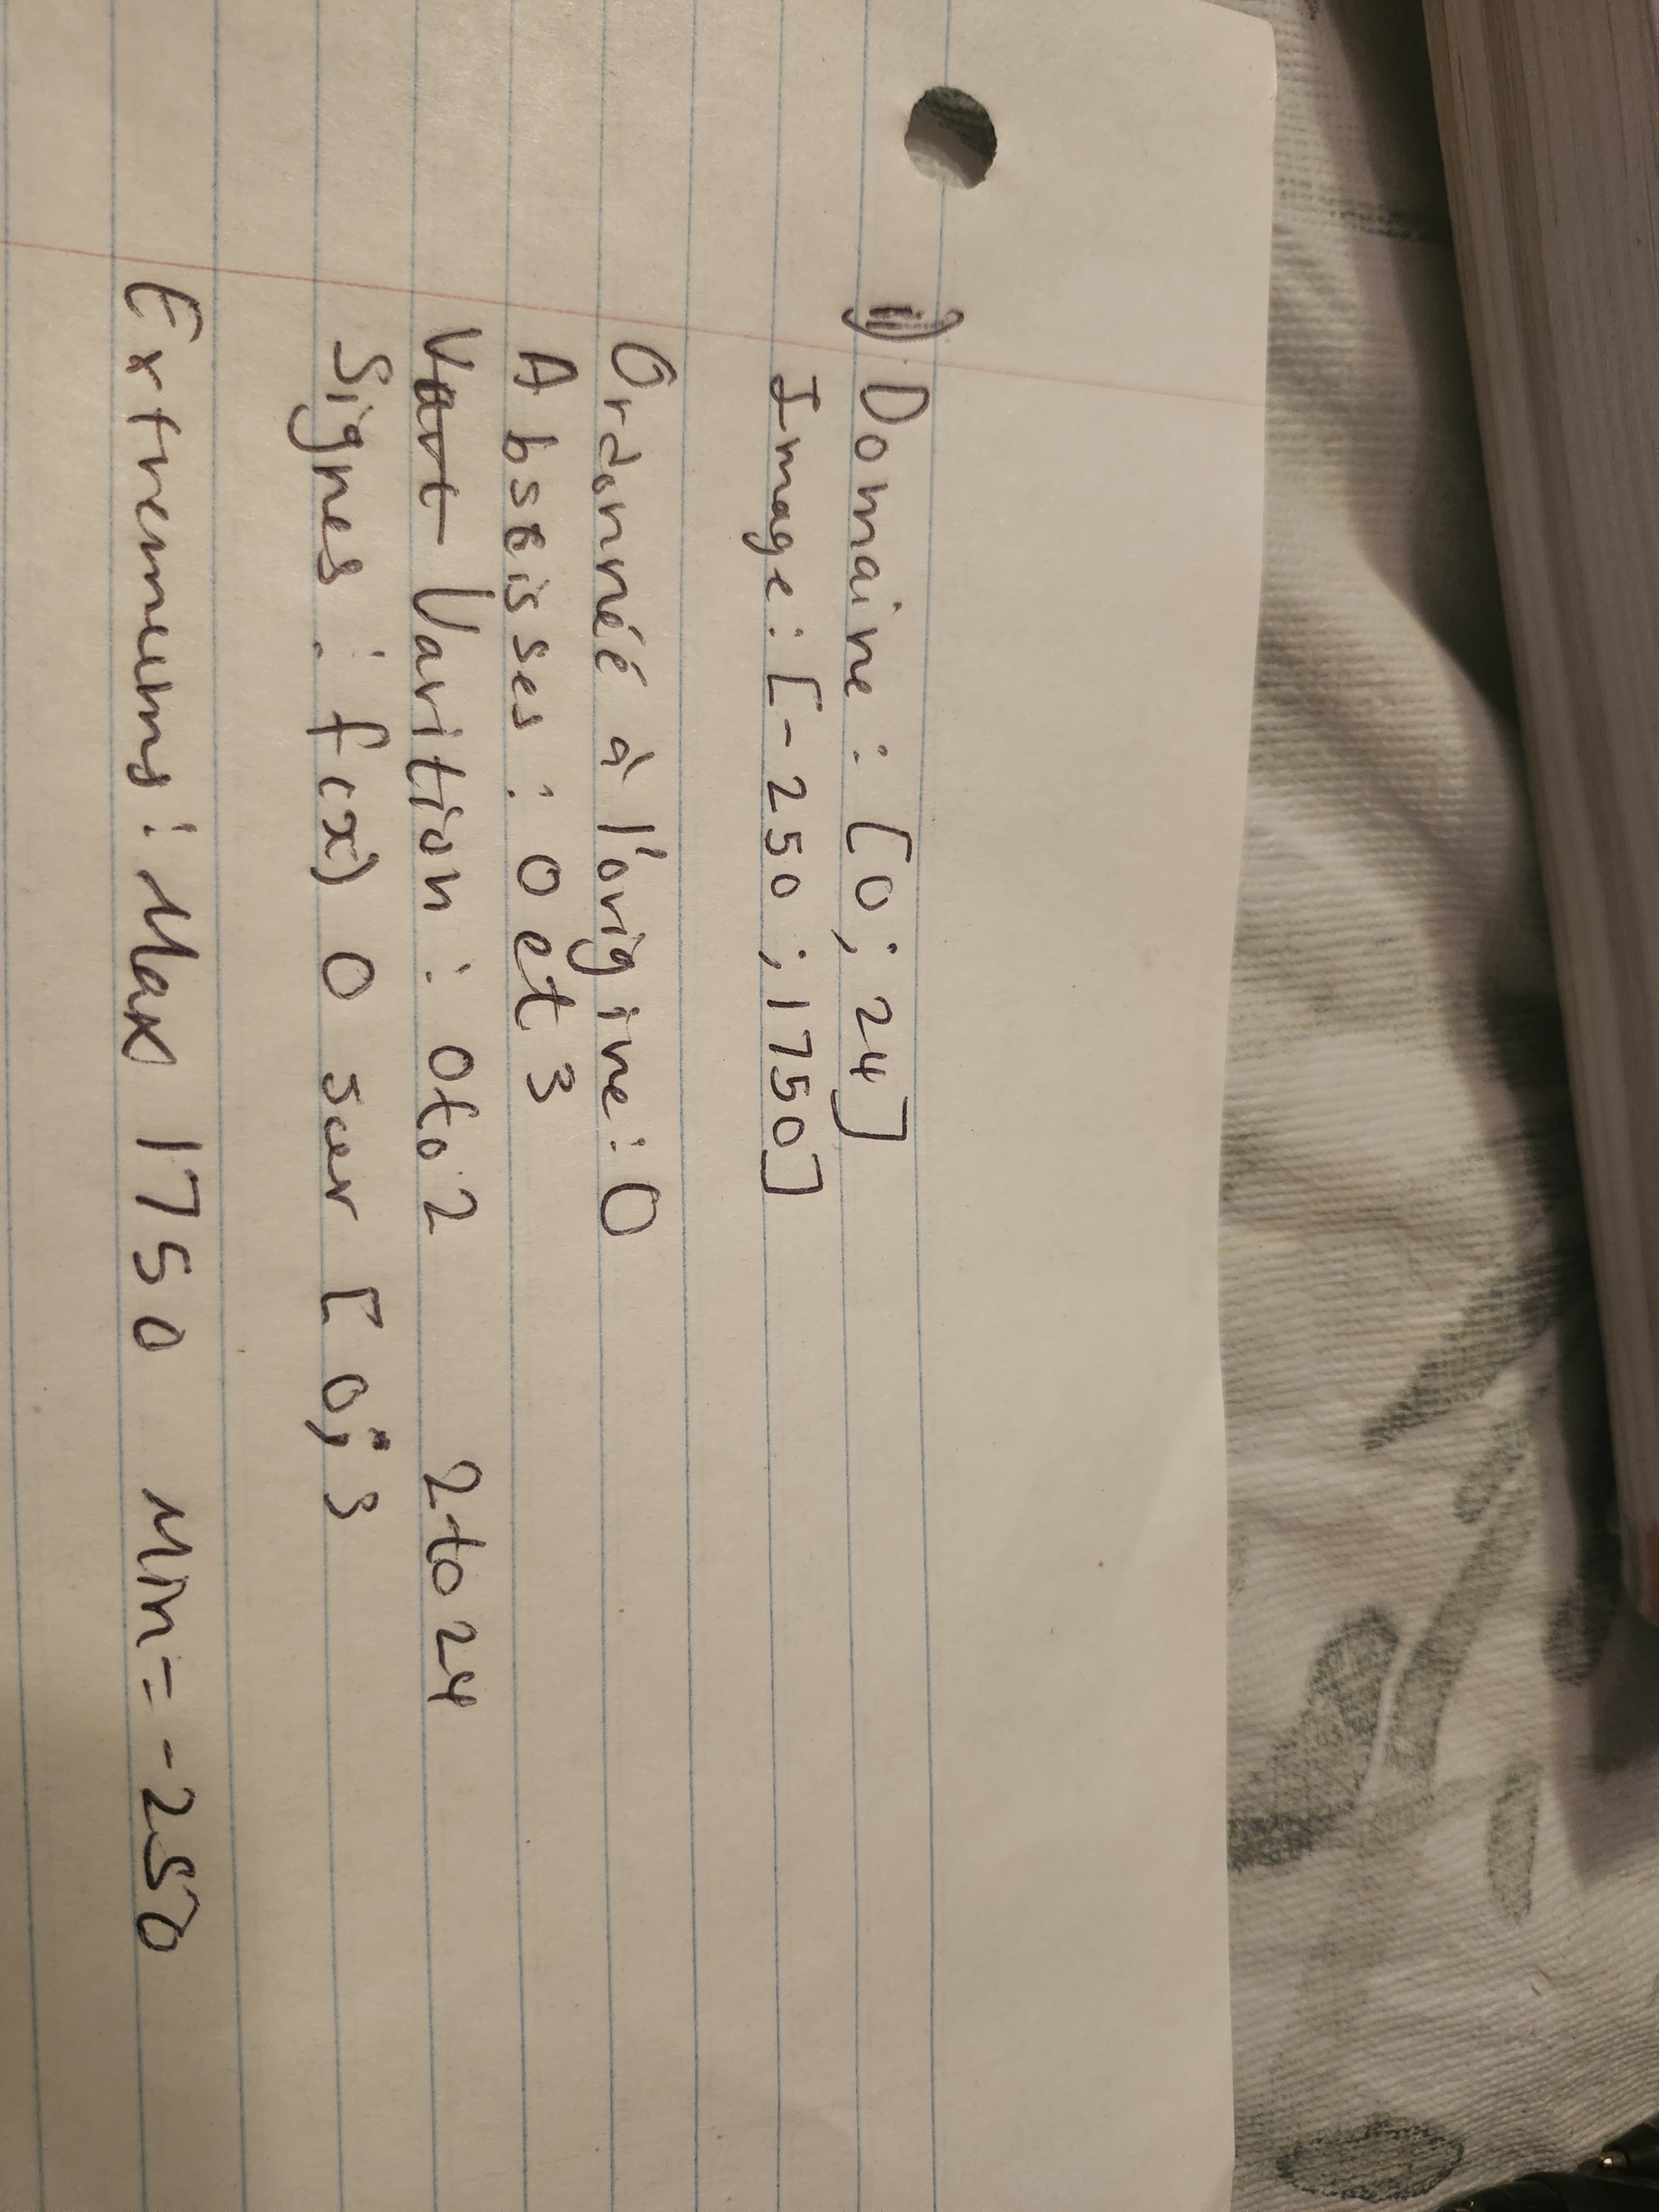 1) Domaine : [0; 24]
Image : [-250 ; 1750]
Ordonné à l'origine : 0
Abscisses : 0 et 3
Vart Varition : 0to2 2to24
Signes : f(x) 0 sur [0; 3
Extremeums : Max 1750 Min = -250